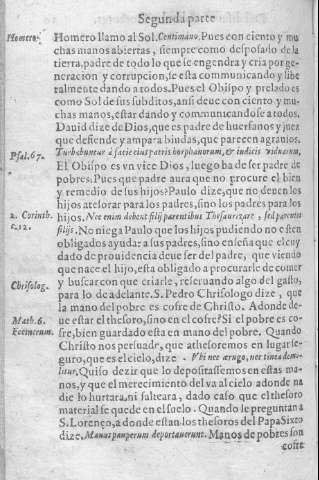 Segunda parte
Homero.
Homero llamo al Sol. Centimano. Pues con ciento y mu
chas manos abiertas, siempre como desposado de la
tierra, padre de todo lo que se engendra y cria por ge-
neracion y corrupcion, se esta comunicando y libe
ralmente dando a todos. Pues el Obispo y prelado es
como Sol de sus subditos, ansi deue con ciento y mu-
chas manos, estar dando y comunicandose a todos.
Dauid dize de Dios, que es padre de huerfanos y juez
que defiende y ampara biudas, que parecen agrauios.
Psal. 67.
Turbabuntur à facie eius patris orphanorum, & iudicis viduarum,
El Obispo es vn vice Dios, luego ha de ser padre de
pobres. Pues que padre aura que no procure el bien
y remedio de sus hijos? Paulo dize, que no deuen los
hijos atesorar para los padres, sino los padres para los
2. Corinth.
c. 12.
hijos. Nec enim debent filij parentibus Thesaurizare, sed parentes
filijs. No niega Paulo que los hijos pudiendo no esten
obligados ayudar a sus padres, sino enseña que el cuy
dado de prouidencia deue ser del padre, que viendo
que nace el hijo, esta obligado a procurarle de comer
Chrisolog.
y buscar con que criarle, reseruando algo del gasto,
para lo de adelante. S. Pedro Chrisologo dize, que
la mano del pobre es cofre de Christo. Adonde de-
Math. 6.
ue estar el thesoro, sino en el cofre? Si el pobre es co-
fre, bien guardado esta en mano del pobre. Quando
Christo nos persuade, que athesoremos en lugar se-
guro, que es el cielo, dize. Vbi nec ærugo, nec tinea demo-
litur. Quiso dezir que lo depositassemos en estas ma-
nos, y que el merecimiento del va al cielo adonde na
die lo hurtara, ni salteara, dado caso que el thesoro
material se quede en el suelo. Quando le preguntan a
S. Lorenço, a donde estan los thesoros del Papa Sixto
dize. Manus pauperum deportauerunt. Manos de pobres son
cofre